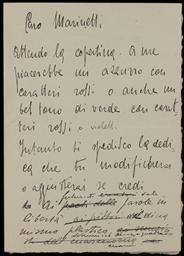 Caro Marinetti
Attendo la copertina. A me
piacerebbe un azzurro con
caratteri rossi o anche un
bel tono di verde con carat-
teri rossi o violetti.
Intanto ti spedisco la dedi-
ca che tu modificherai
o aggiusterai se credi
ai futuristi
ai poeti delle parole in
libertà ai pittori del dina
mismo plastico